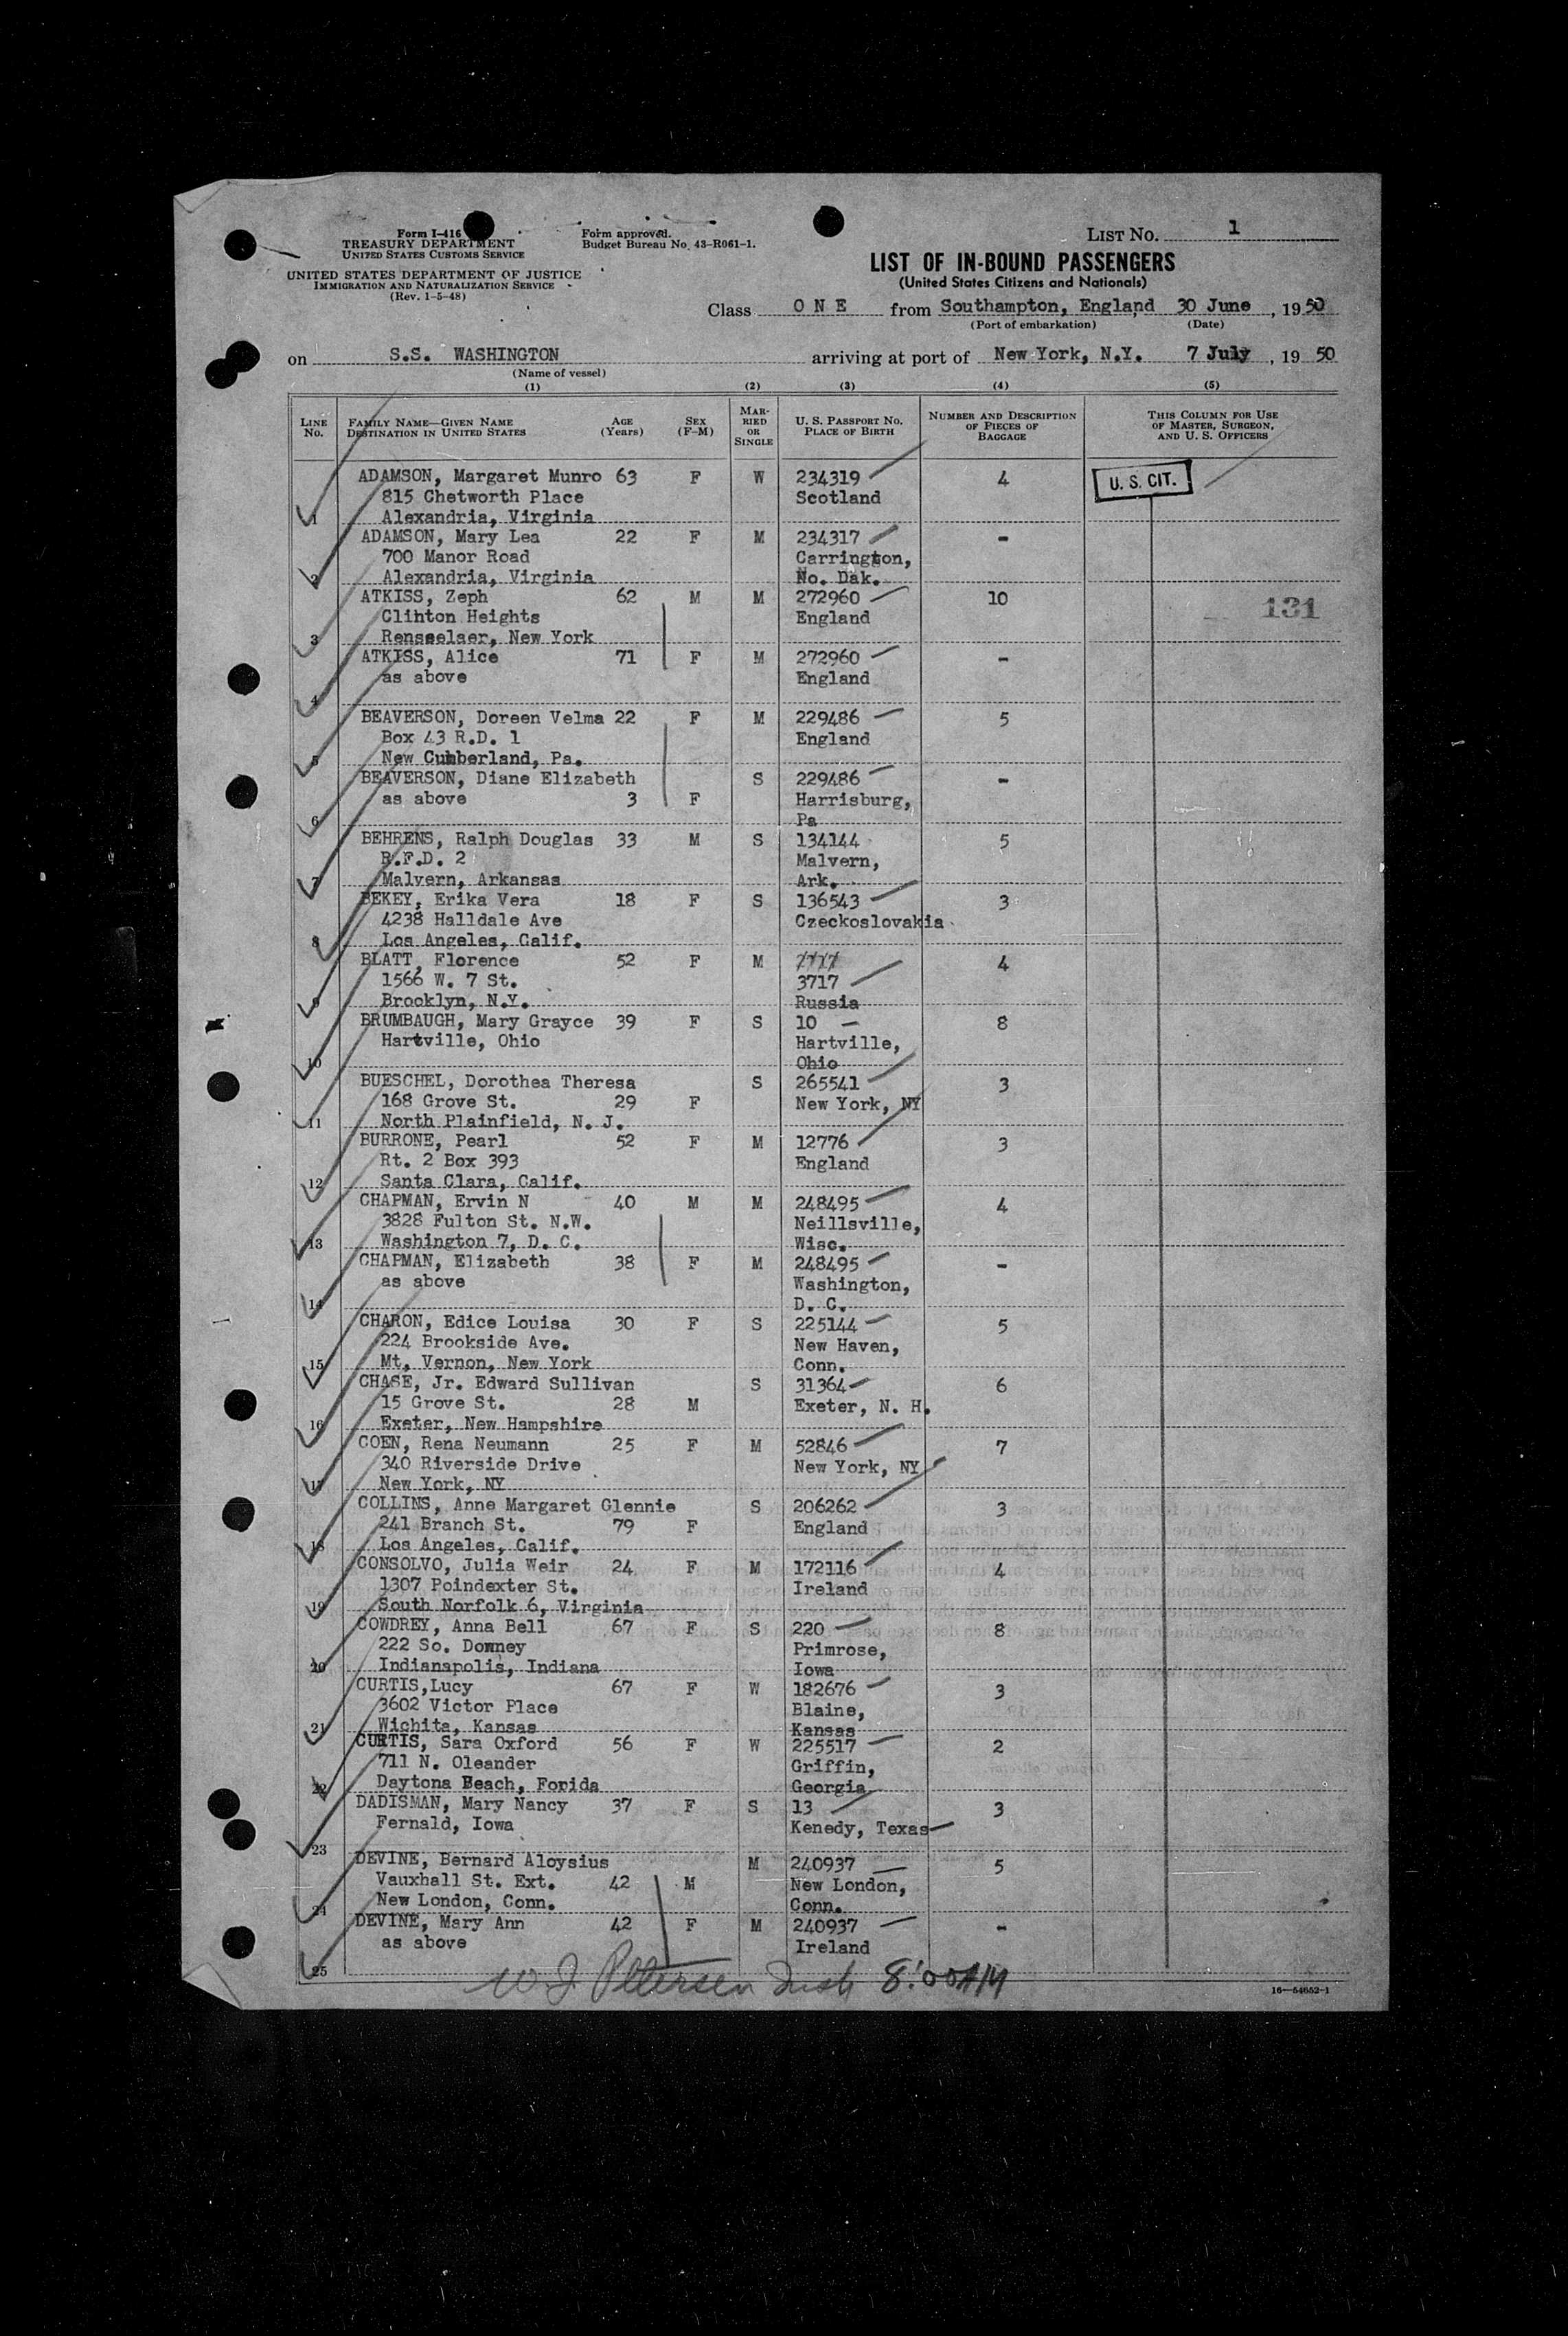 Form I-416
TREASURY DEPARTMENT
UNITED STATES CUSTOMS SERVICE
UNITED STATES DEPARTMENT OF JUSTICE
IMMIGRATION AND NATURALIZATION SERVICE
(Rev. 1-5-48)
Form approved.
Budget Bureau No. 43-R061-1.
LIST NO. 1
LIST OF IN-BOUND PASSENGERS
(United States Citizens and Nationals)
Class O N E from Southampton, England 30 June, 1950
(Port of embarkation) (Date)
on S.S. WASHINGTON arriving at port of New York, N.Y. 7 July, 19 50
(Name of vessel)
(1) (2) (3) (4) (5)
LINE No. FAMILY NAME—GIVEN NAME DESTINATION IN UNITED STATES AGE (Years) SEX (F-M) MARRIED OR SINGLE U. S. PASSPORT NO. PLACE OF BIRTH NUMBER AND DESCRIPTION OF PIECES OF BAGGAGE THIS COLUMN FOR USE OF MASTER, SURGEON, AND U. S. OFFICERS
ADAMSON, Margaret Munro 63 F W 234319 4 U. S. CIT.
815 Chetworth Place Scotland
1 Alexandria, Virginia
ADAMSON, Mary Lea 22 F M 234317 -
700 Manor Road Carrington,
2 Alexandria, Virginia No. Dak.
ATKISS, Zeph 62 M M 272960 10 131
Clinton Heights England
3 Rensselaer, New York
ATKISS, Alice 71 F M 272960 -
as above England
4
BEAVERSON, Doreen Velma 22 F M 229486 5
Box 43 R.D. 1 England
5 New Cumberland, Pa.
BEAVERSON, Diane Elizabeth S 229486 -
as above 3 F Harrisburg,
6 Pa
BEHRENS, Ralph Douglas 33 M S 134144 5
R.F.D. 2 Malvern,
7 Malvern, Arkansas Ark.
BEKEY, Erika Vera 18 F S 136543 3
4238 Halldale Ave Czeckoslovakia
8 Los Angeles, Calif.
BLATT, Florence 52 F M 4
1566 W. 7 St. 3717
9 Brooklyn, N.Y. Russia
BRUMBAUGH, Mary Grayce 39 F S 10 8
Hartville, Ohio Hartville,
10 Ohio
BUESCHEL, Dorothea Theresa S 265541 3
168 Grove St. 29 F New York, NY
11 North Plainfield, N. J.
BURRONE, Pearl 52 F M 12776 3
Rt. 2 Box 393 England
12 Santa Clara, Calif.
CHAPMAN, Ervin N 40 M M 248495 4
3828 Fulton St. N.W. Neillsville,
13 Washington 7, D. C. Wisc.
CHAPMAN, Elizabeth 38 F M 248495 -
as above Washington,
14 D. C.
CHARON, Edice Louisa 30 F S 225144 5
224 Brookside Ave. New Haven,
15 Mt, Vernon, New York Conn.
CHASE, Jr. Edward Sullivan S 31364 6
15 Grove St. 28 M Exeter, N. H.
16 Exeter, New Hampshire
COEN, Rena Neumann 25 F M 52846 7
340 Riverside Drive New York, NY
17 New York, NY
COLLINS, Anne Margaret Glennie S 206262 3
241 Branch St. 79 F England
18 Los Angeles, Calif.
CONSOLVO, Julia Weir 24 F M 172116 4
1307 Poindexter St. Ireland
19 South Norfolk 6, Virginia
COWDREY, Anna Bell 67 F S 220 8
222 So. Downey Primrose,
20 Indianapolis, Indiana Iowa
CURTIS,Lucy 67 F W 182676 3
3602 Victor Place Blaine,
21 Wichita, Kansas Kansas
CURTIS, Sara Oxford 56 F W 225517 2
711 N. Oleander Griffin,
22 Daytona Beach, Forida Georgia
DADISMAN, Mary Nancy 37 F S 13 3
Fernald, Iowa Kenedy, Texas
23
DEVINE, Bernard Aloysius M 240937 5
Vauxhall St. Ext. 42 M New London,
24 New London, Conn. Conn.
DEVINE, Mary Ann 42 F M 240937 -
as above Ireland
25
W. J. Petersen 8:00AM
16—54652-1